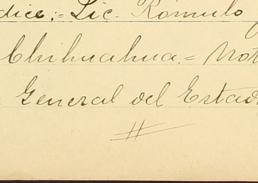 dice:= Lic. Rómulo
Chihuahua.= Not
General del Estad